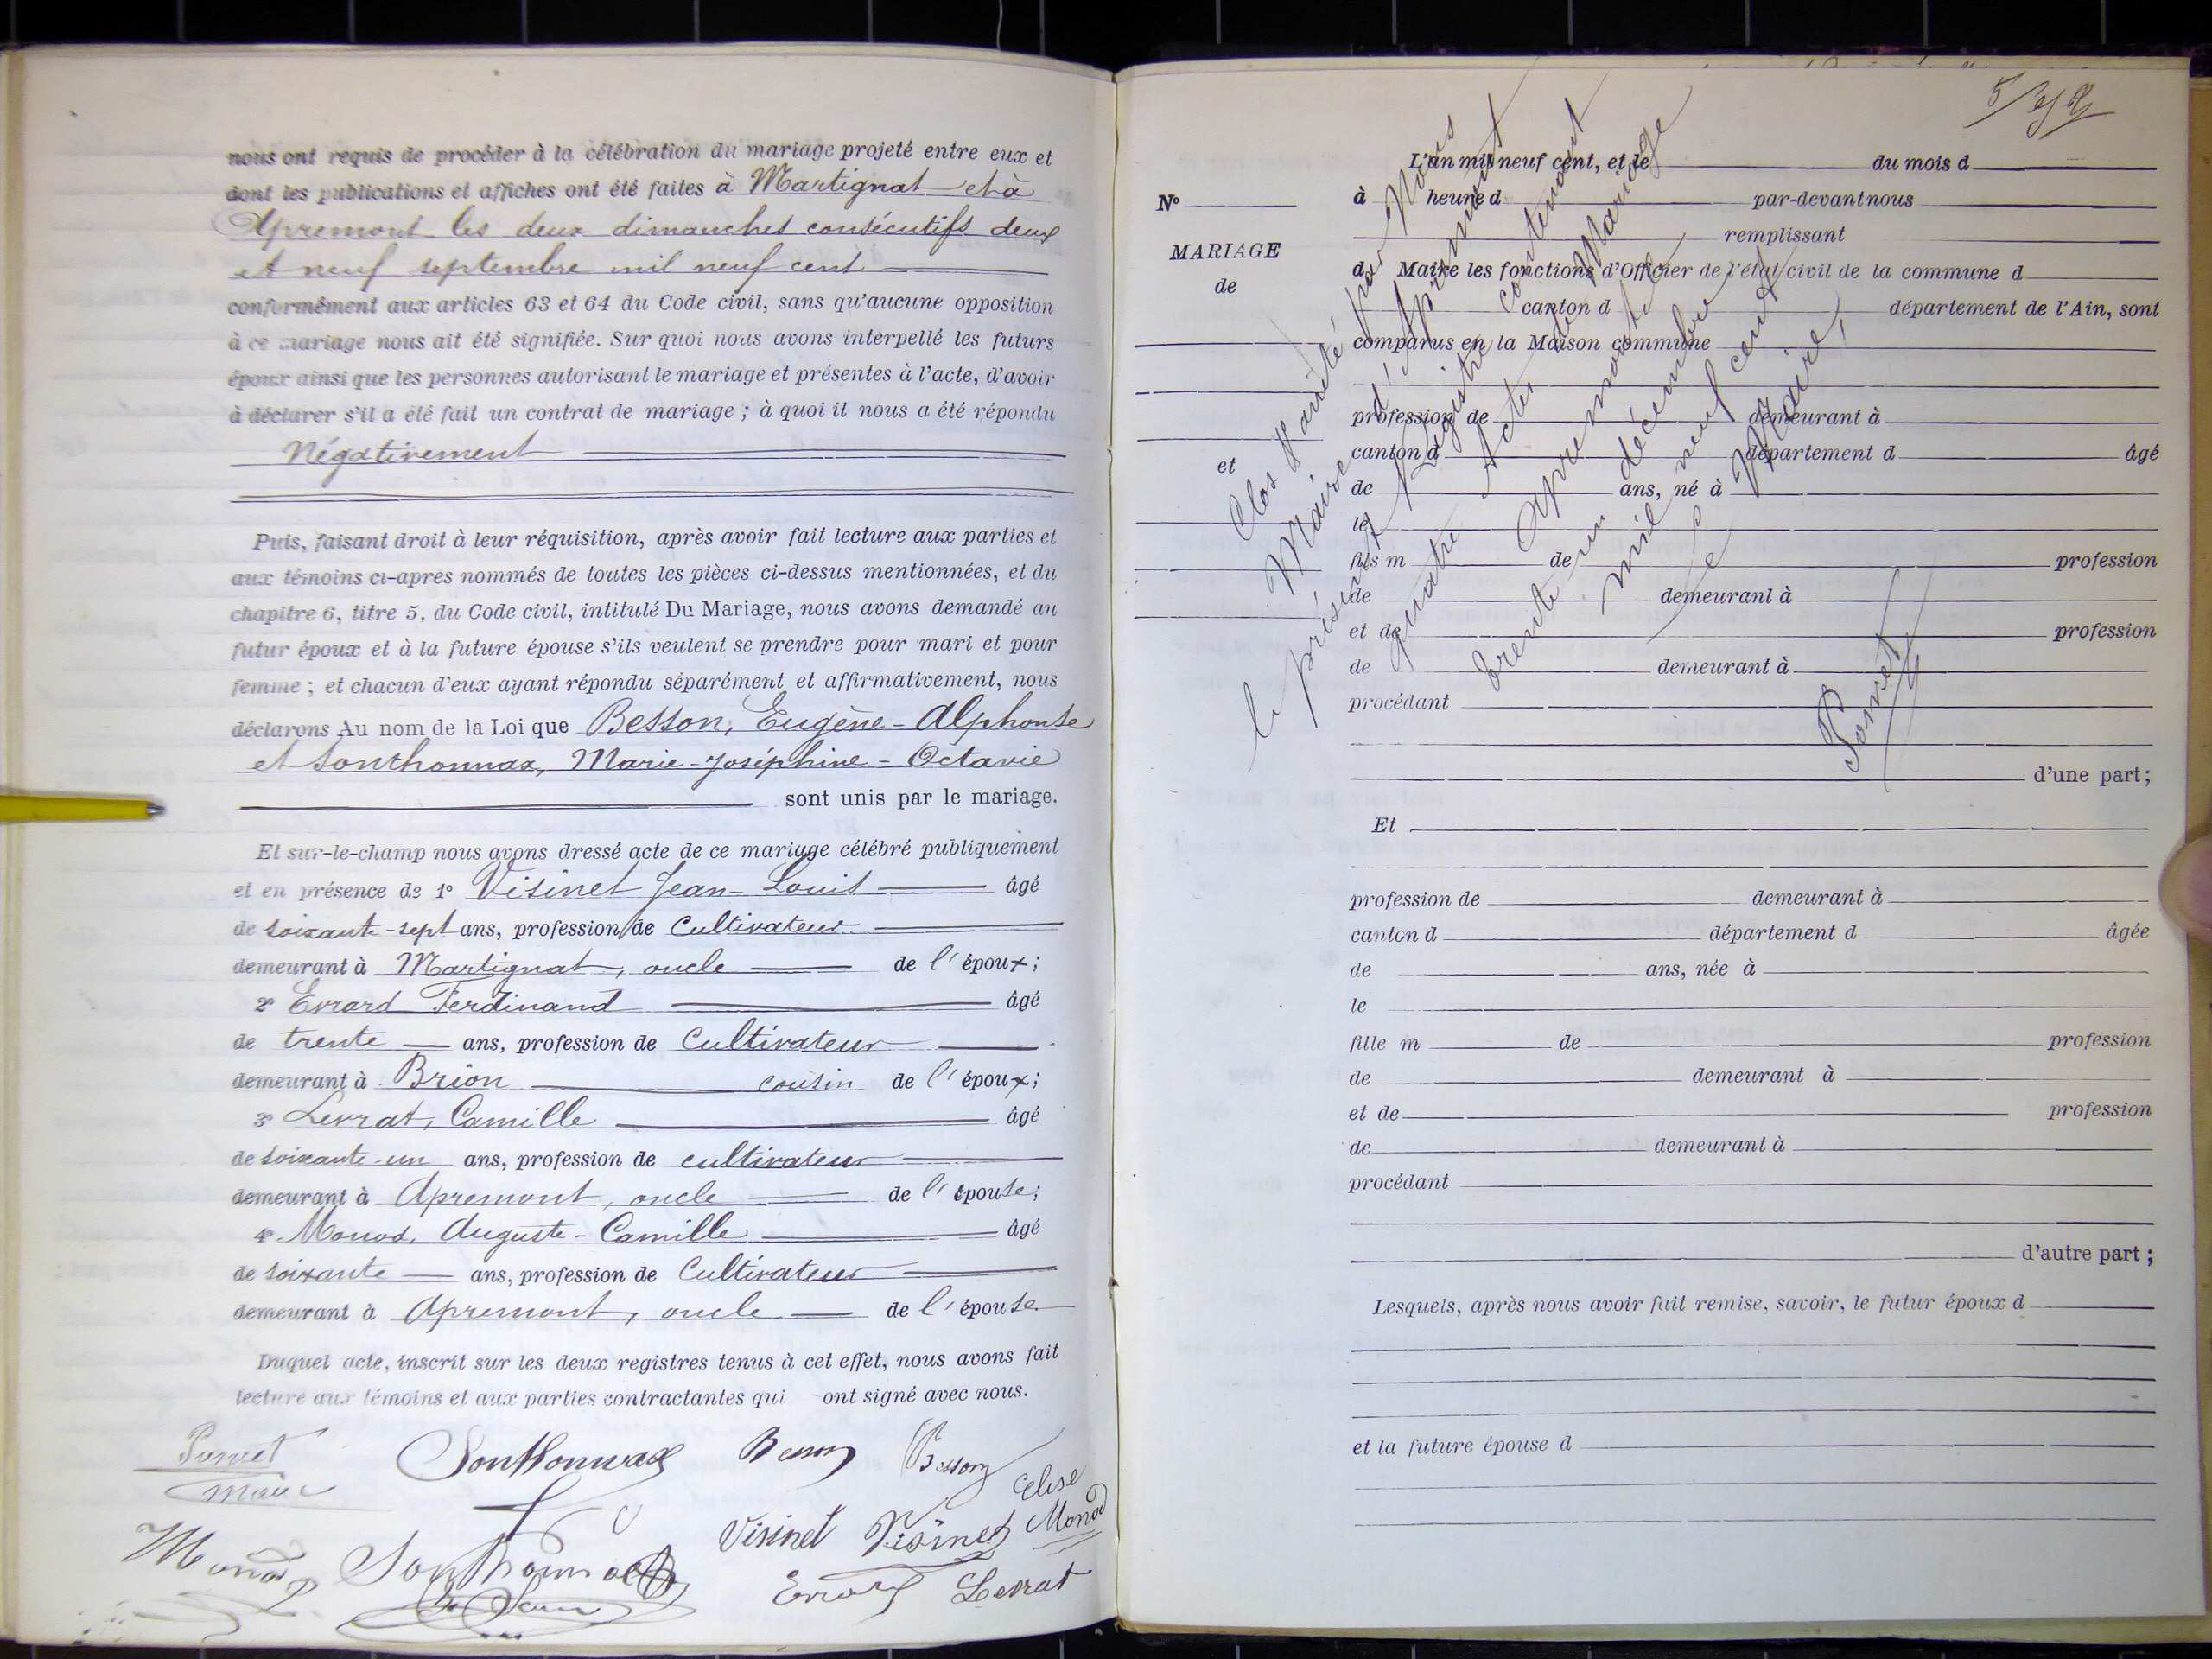 nous ont requis de procéder à la célébration du mariage projeté entre eux et
dont les publications et affiches ont été faites à Martignat et à
Apremont les deux dimanches consécutifs deux
et neuf septembre mil neuf cent
conformément aux articles 63 et 64 du Code civil, sans qu'aucune opposition
à ce mariage nous ait été signifiée. Sur quoi nous avons interpellé les futurs
époux ainsi que les personnes autorisant le mariage et présentes à l'acte, d'avoir
à déclarer s'il a été fait un contrat de mariage ; à quoi il nous a été répondu
Négativement
Puis, faisant droit à leur réquisition, après avoir fait lecture aux parties et
aux témoins ci-apres nommés de toutes les pièces ci-dessus mentionnées, et du
chapitre 6, titre 5, du Code civil, intitulé Du Mariage, nous avons demandé au
futur époux et à la future épouse s'ils veulent se prendre pour mari et pour
femme ; et chacun d'eux ayant répondu séparément et affirmativement, nous
déclarons Au nom de la Loi que Besson, Eugène-Alphonse
et Sonthonnax, Marie-Joséphine-Octavie
sont unis par le mariage.
Et sur-le-champ nous avons dressé acte de ce mariage célébré publiquement
et en présence de 1° Visinet Jean-Louis âgé
de soixante-sept ans, profession de Cultivateur
demeurant à Martignat, oncle de l'époux ;
2° Evrard Ferdinand âgé
de trente ans, profession de Cultivateur
demeurant à Brion cousin de l'époux ;
3° Levrat, Camille âgé
de soixante-un ans, profession de cultivateur
demeurant à Apremont, oncle de l'épouse ;
4° Monod, Auguste-Camille âgé
de soixante ans, profession de Cultivateur
demeurant à Apremont, oncle de l'épouse
Duquel acte, inscrit sur les deux registres tenus à cet effet, nous avons fait
lecture aux témoins et aux parties contractantes qui ont signé avec nous.
Ponet Sonthonnax Besson Besson
Maire Elise
Monod Sonthonnax Visinet Visinet Monod
Evrard Levrat
N°
MARIAGE
de
et
L'an mil neuf cent, et le du mois d
à heure d par-devant nous
remplissant
d Maire les fonctions d'Officier de l'état civil de la commune d
canton d département de l'Ain, sont
comparus en la Maison commune
profession de demeurant à
canton d département d âgé
de ans, né à
le
fils m de profession
de demeurant à
et de profession
de demeurant à
procédant
d'une part ;
Et
profession de demeurant à
canton d département d âgée
de ans, née à
le
fille m de profession
de demeurant à
et de profession
de demeurant à
procédant
d'autre part ;
Lesquels, après nous avoir fait remise, savoir, le futur époux d
et la future épouse d
Clos & arrêté par Nous
Maire d'Apremont
le présent Registre contenant
quatre Actes de Mariage
Apremont le
trente un décembre
mil neuf cent
Le Maire,
Ponet